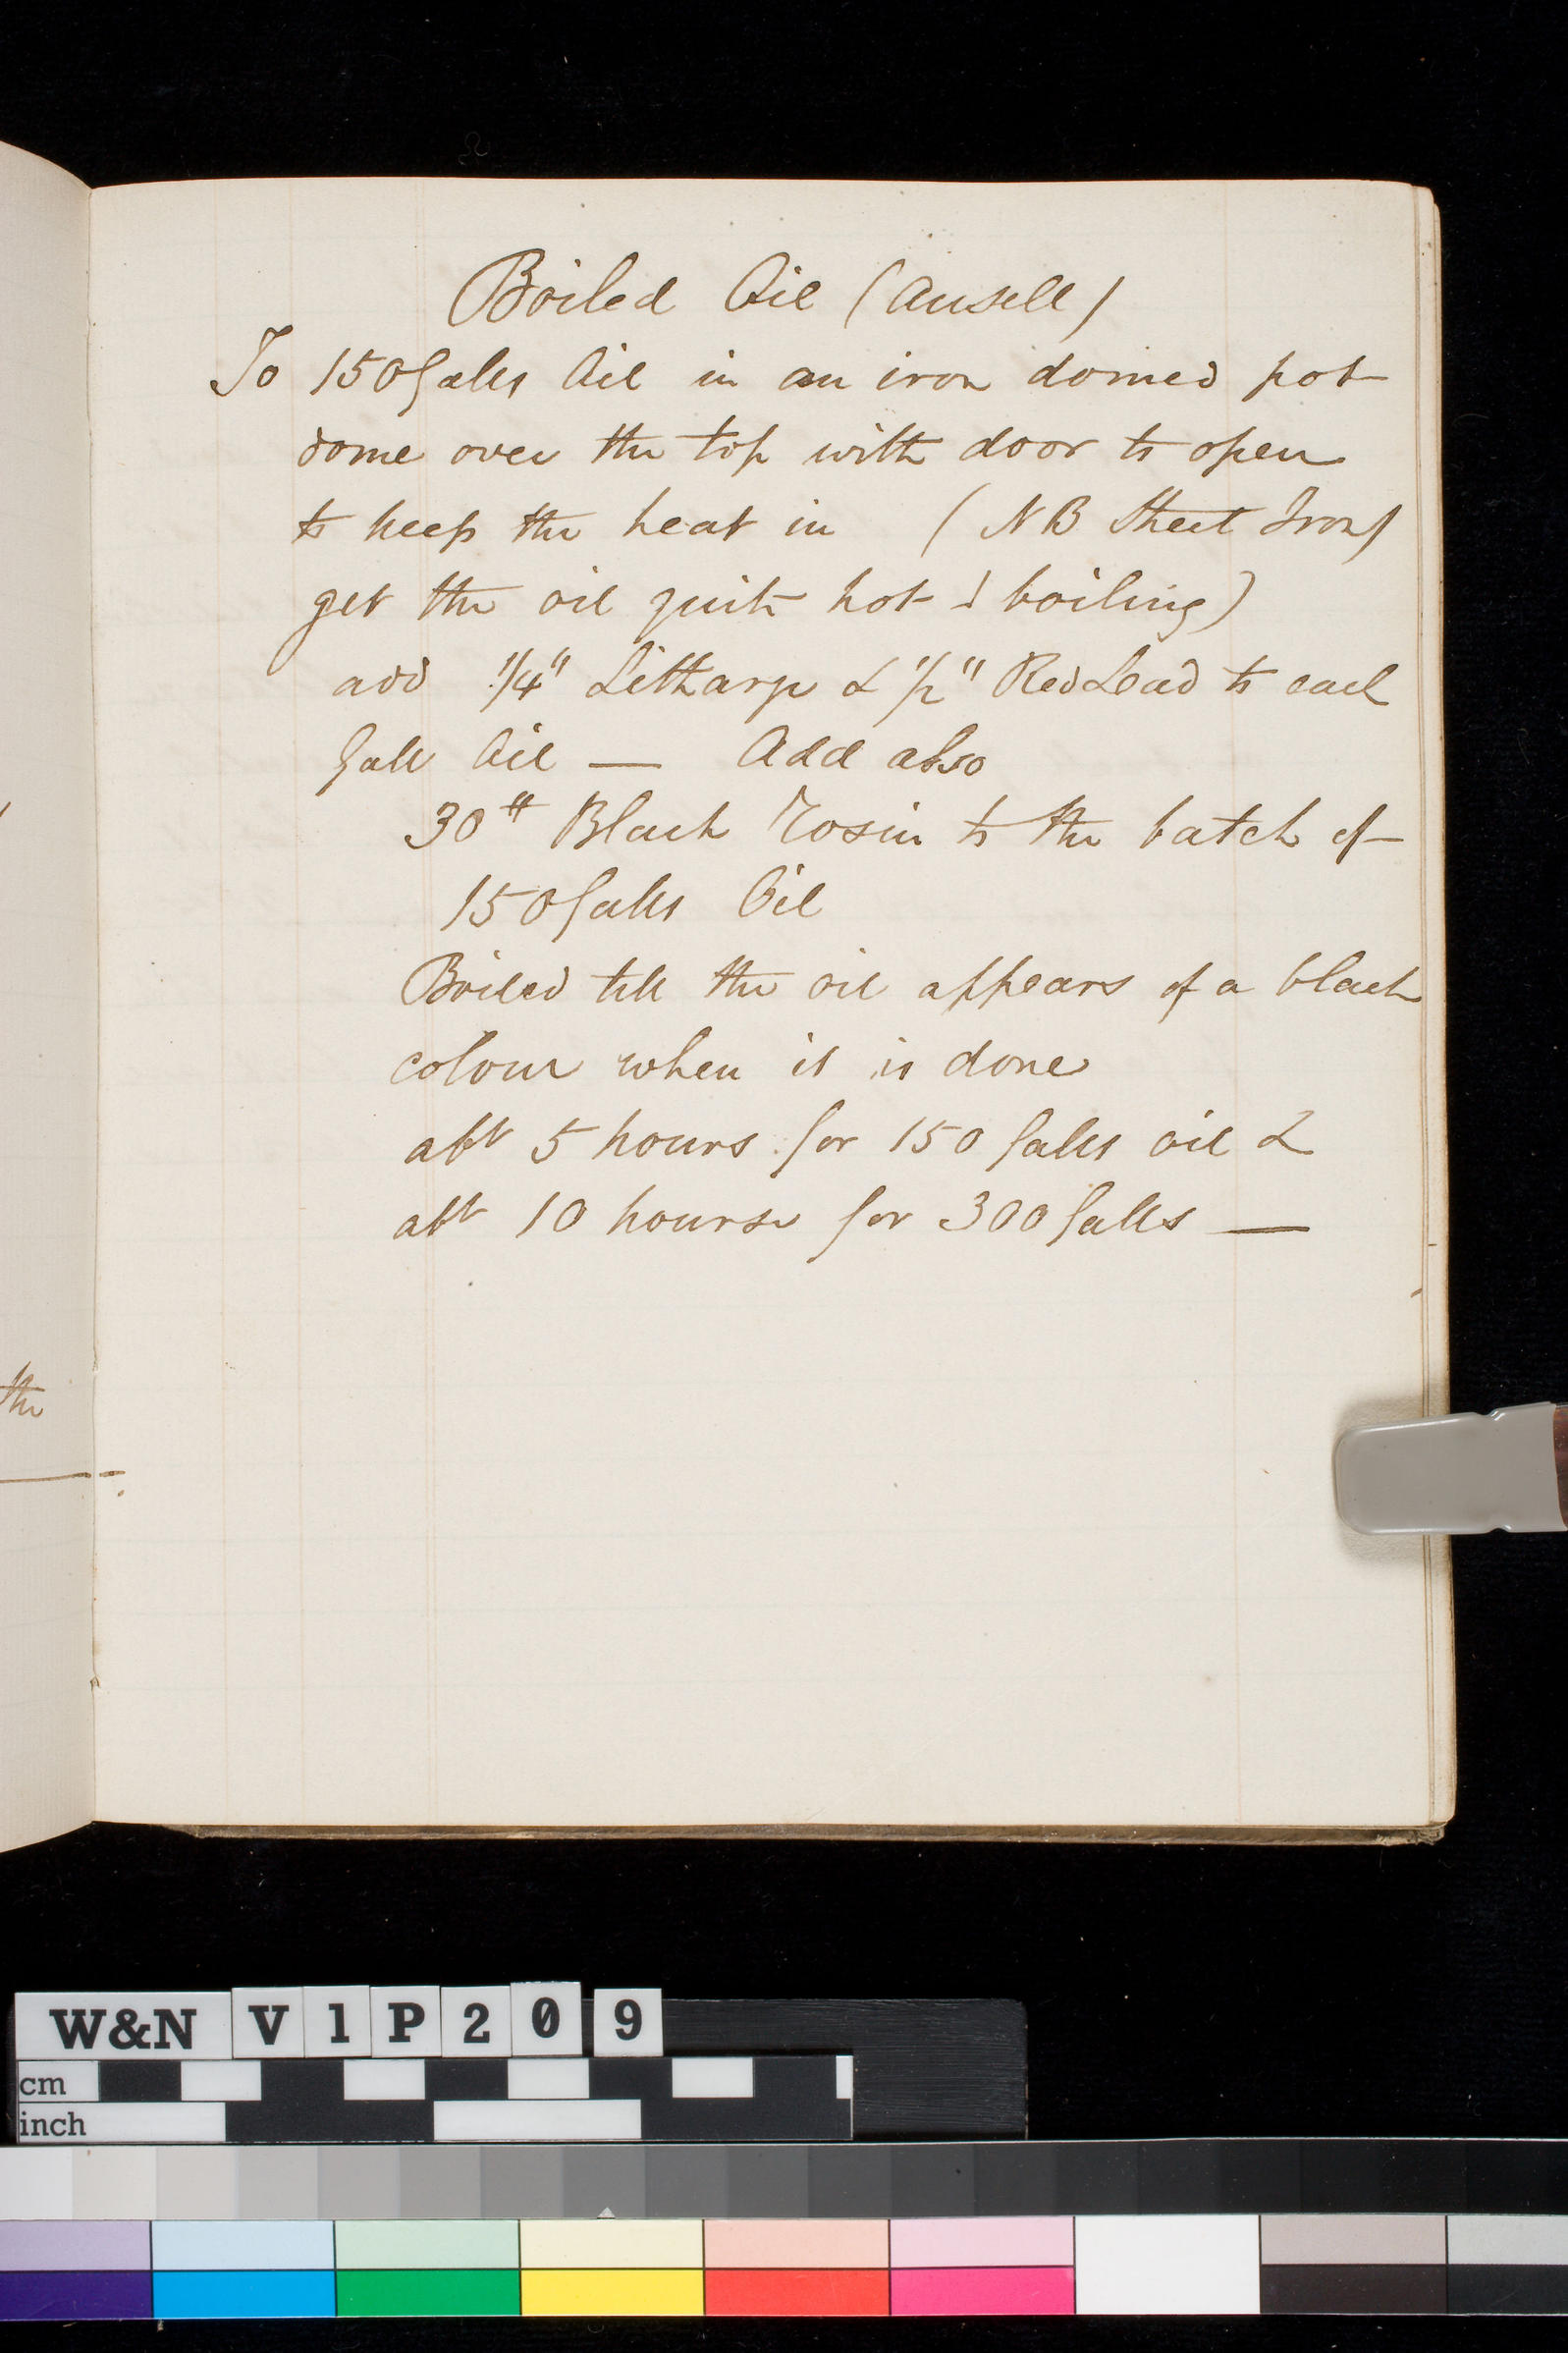 Boiled Oil (Ansell)
To 150 Galls Oil in an iron domed pot
dome over the top with door to open
to keep the heat in (NB Sheet Iron)
get the oil quite hot & boiling)
add 1/4" Litharge & 1/2" Red Lead to each
Gall Oil — Add also
30" Black Rosin to the batch of
150 Galls Oil
Boiled till the oil appears of a black
colour when it is done
abt 5 hours for 150 Galls oil &
abt 10 hours for 300 Galls —
the
W&N V1P209
cm
inch